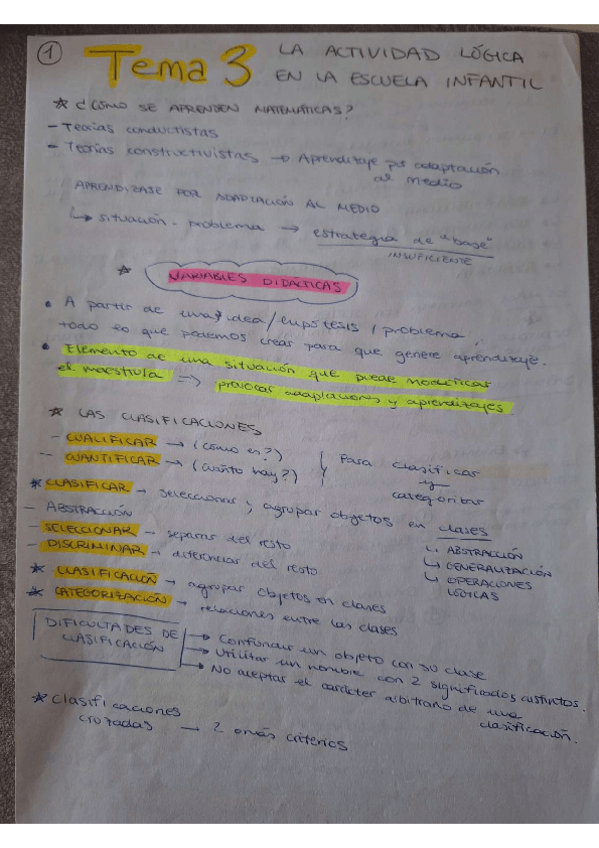 1
Tema 3 LA ACTIVIDAD LÓGICA
EN LA ESCUELA INFANTIL
* ¿CÓMO SE APRENDEN MATEMÁTICAS?
- Teorías conductistas
- Teorías constructivistas → Aprendizaje por adaptación
al medio
APRENDIZAJE POR ADAPTACIÓN AL MEDIO
↳ situación - problema → estrategia de "base"
INSUFICIENTE
* VARIABLES DIDÁCTICAS
• A partir de una idea / / problema,
todo lo que podemos crear para que genere aprendizaje.
• Elemento de una situación que puede modificar
el maestro/a → provocar adaptaciones y aprendizajes
* LAS CLASIFICACIONES
- CUALIFICAR → (cómo es?)
- CUANTIFICAR → (cuánto hay?)
Para clasificar
y
categorizar
* CLASIFICAR → seleccionar y agrupar objetos en clases
- ABSTRACCIÓN
- SELECCIONAR → separar del resto
- DISCRIMINAR → diferenciar del resto
↳ ABSTRACCIÓN
↳ GENERALIZACIÓN
↳ OPERACIONES
LÓGICAS
* CLASIFICACIÓN → agrupar objetos en clases
* CATEGORIZACIÓN → relaciones entre las clases
DIFICULTADES DE
CLASIFICACIÓN
→ Confundir un objeto con su clase
→ Utilizar un nombre con 2 significados distintos.
→ No aceptar el carácter arbitrario de una
clasificación.
* Clasificaciones
cruzadas → 2 o más criterios